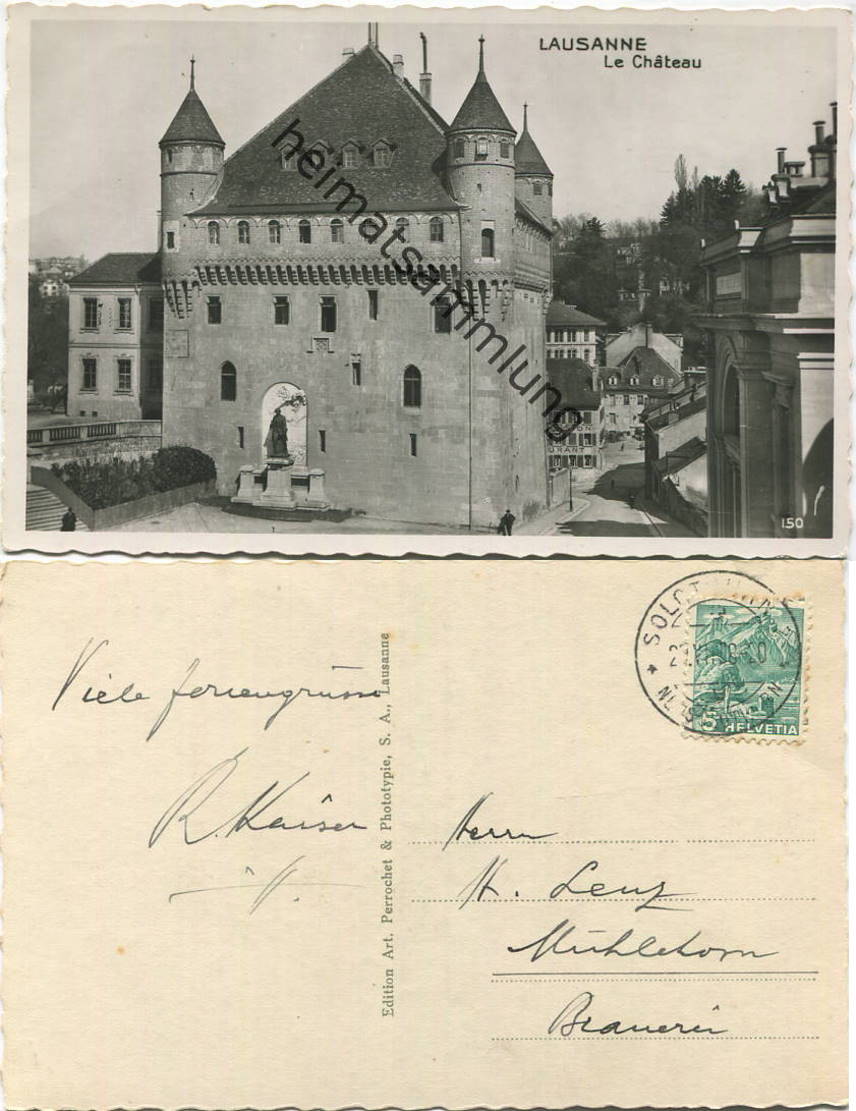 LAUSANNE
Le Château
heimatsammlung.de
150
Viele feriengrüsse
R. Kaiser
Edition Art. Perrochet & Phototypie, S. A., Lausanne
5 HELVETIA
Herrn
H. Lenz
Mühlehorn
Brauerei